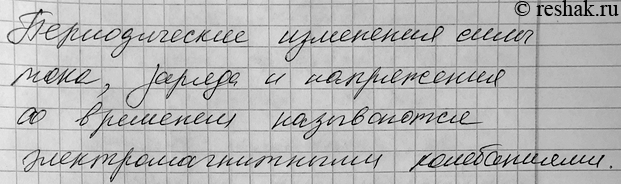 © reshak.ru
Периодические изменения силы
тока, заряда и напряжения
со временем называются
электромагнитными колебаниями.